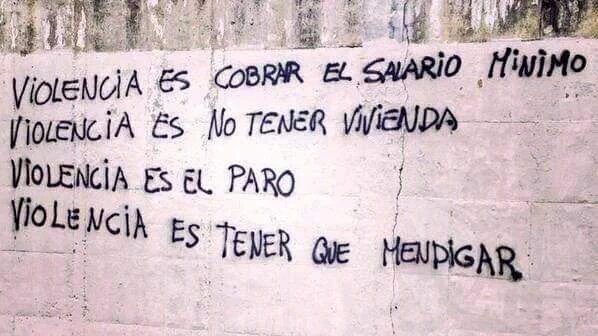 VIOLENCIA ES COBRAR EL SALARIO MINIMO
VIOLENCIA ES NO TENER VIVIENDA
VIOLENCIA ES EL PARO
VIOLENCIA ES TENER QUE MENDIGAR